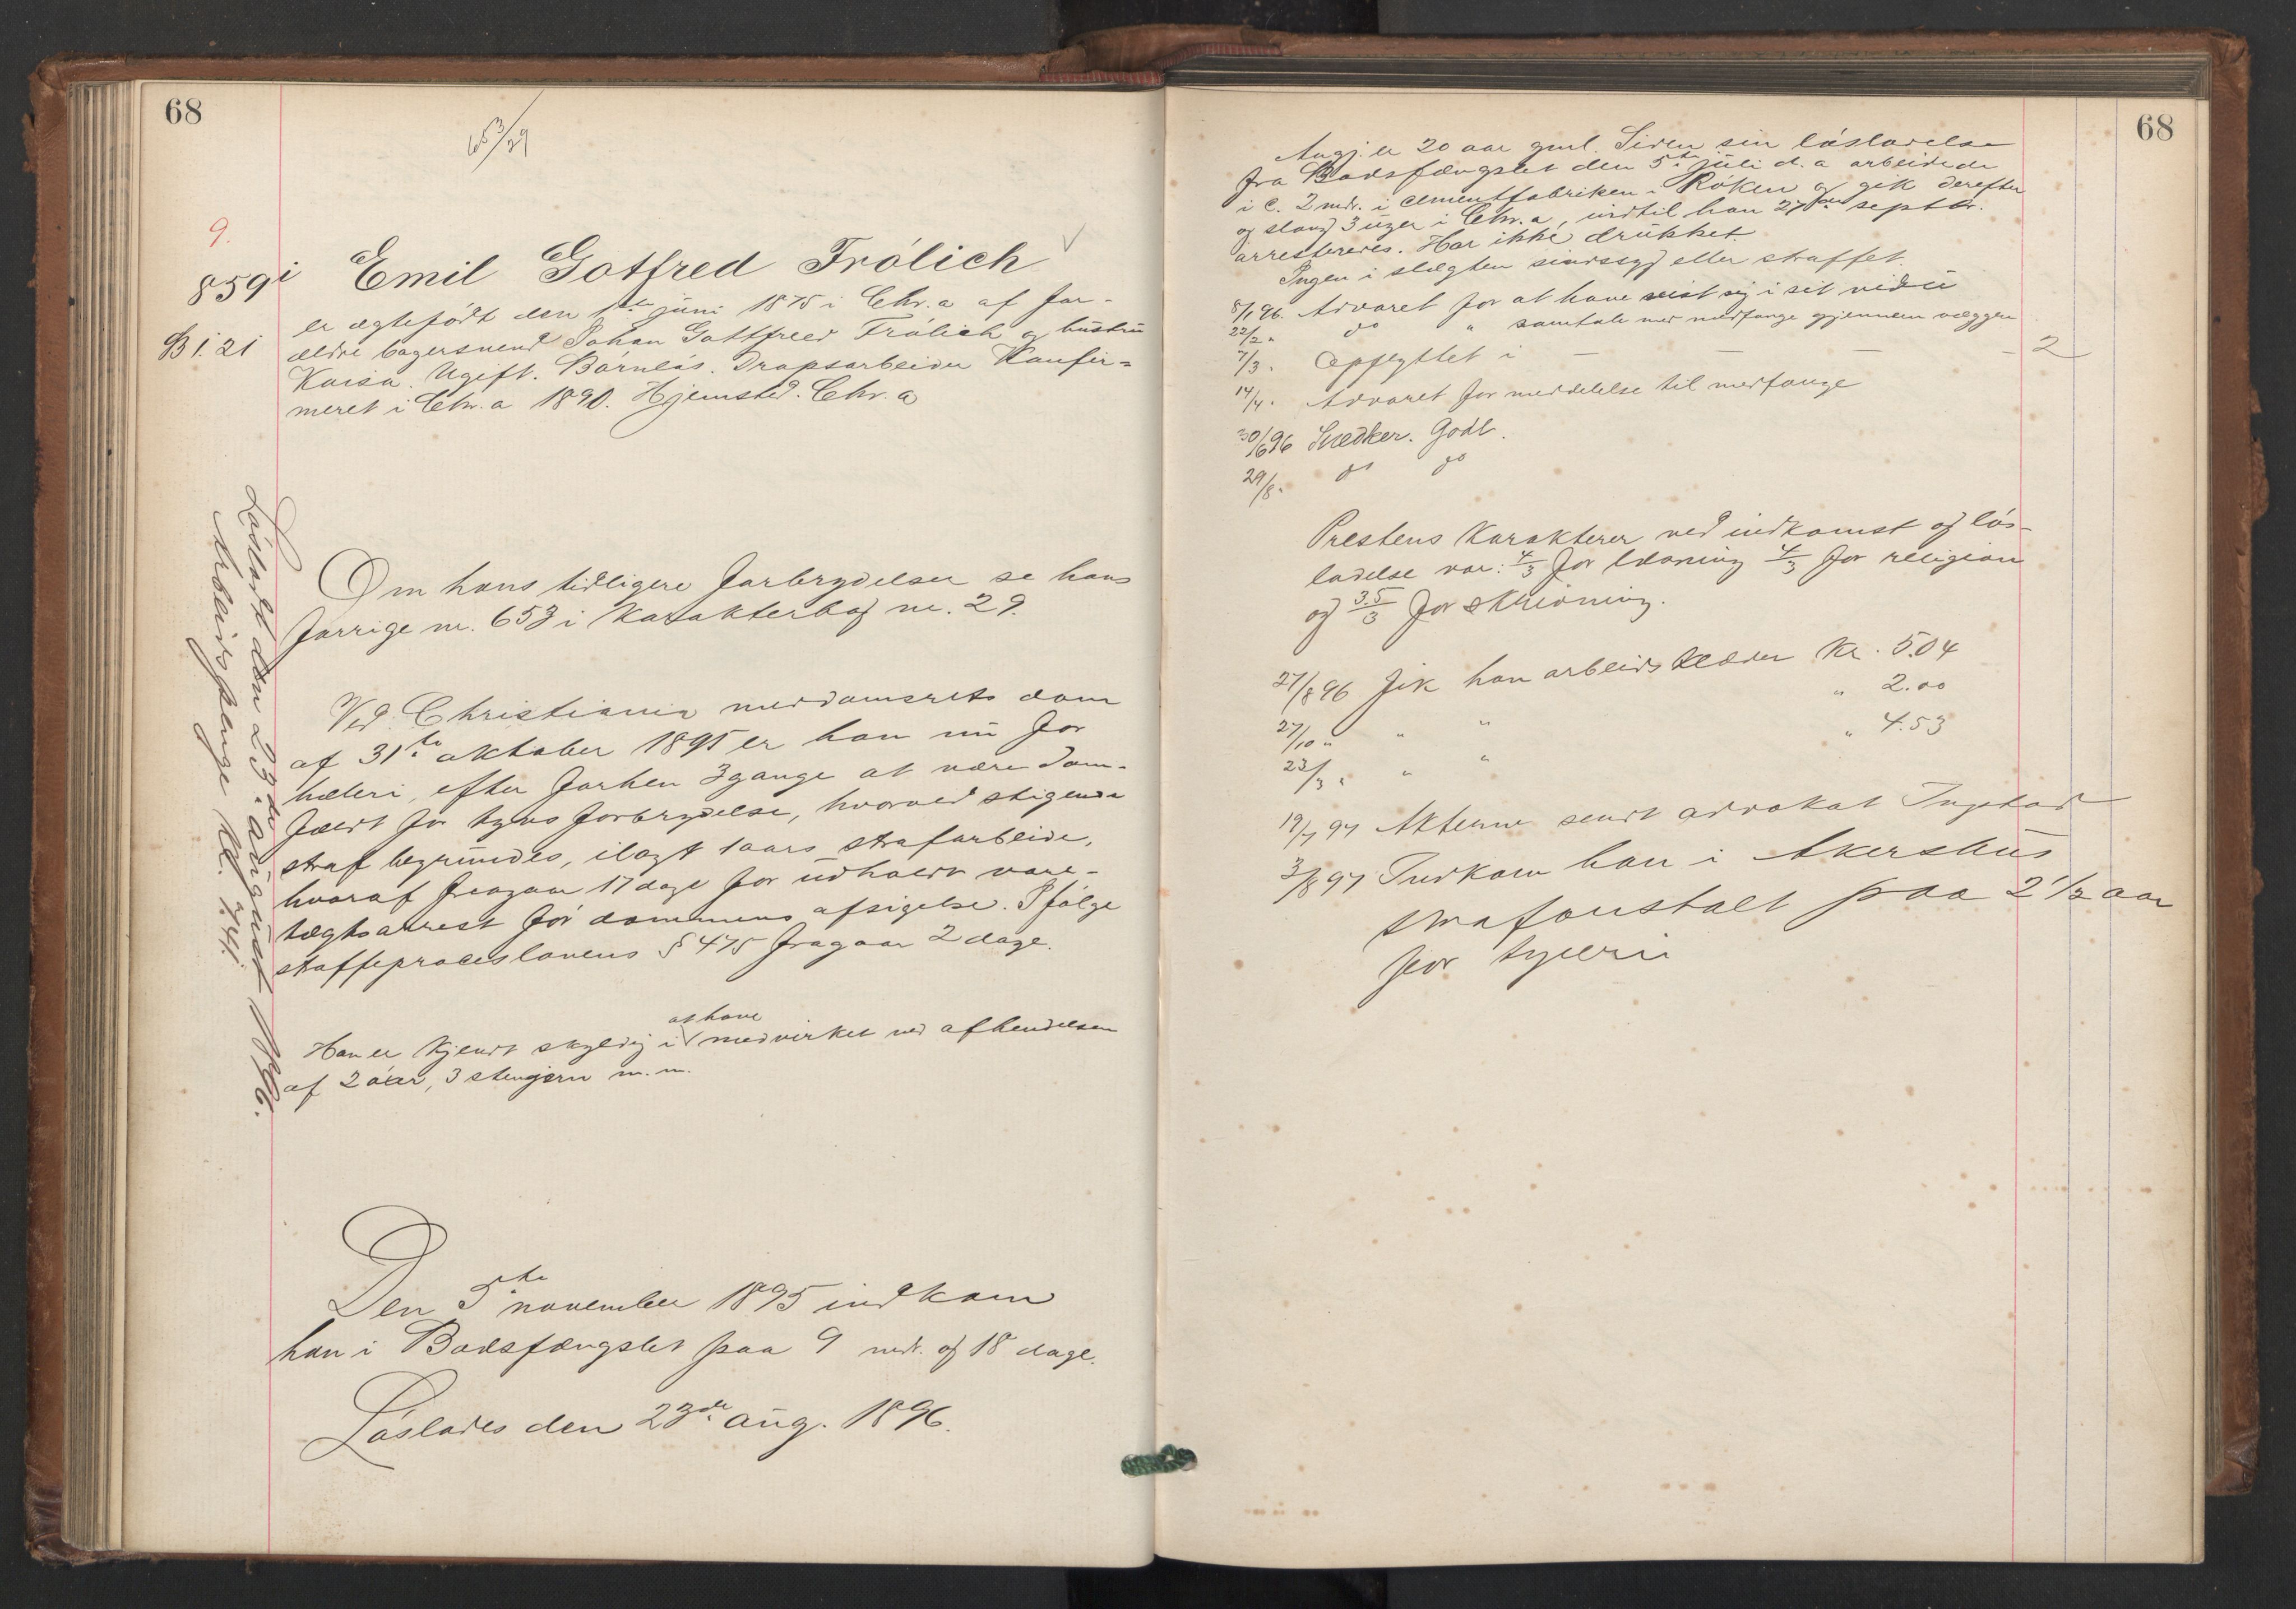 68
653/29
9.
859 i Emil Gotfred Frólich √
B 1. 21
er ægtefödt den 1ste juni 1875 i Chr.a af for-
ældre bagersvend Johan Gottfred Frölich og hustru
Kaisa. Ugift. Börnlös. Dropsarbeider Konfir=
meret i Chr.a 1890. Hjemsted. Chr.a
Om hans tidligere forbrydelser se hans
forrige nr. 653 i Karakterbog nr. 29.
Ved Christiania meddomsrets dom
af 31te oktober 1895 er han nu for
hæleri, efter forhen 3 gange at være dom-
fældt for tyvs forbrydelse, hvorved stigende
straf begrundes, ilagt 1 aars strafarbeide,
hvoraf fragaar 17 dage for udholdt vare-
tægtsarrest för dommens afsigelse. Ifölge
staffeproceslovens § 475 fragaar 2 dage.
Han er kjendt skyldig i at have medvirket ved afhendelsen
af 2 öxer, 3 stemjern m. m.
Den 5te november 1895 indkom
han i Bodsfængslet paa 9 mdr. og 18 dage.
Löslades den 23de aug. 1896.
Lösladt den 23de august 1896.
Arbeidspenge
68
Angj. er 20 aar gml. Siden sin löslatelse
fra Bodsfængslet den 5te juli d. a arbeidede
i c. 2 mdr. i cementfabriken i Röken og gik derefter
og slang 3 uger i Chr.a, indtil han 27de septbr.
arresteredes. Har ikke drukket.
Ingen i slægten sindssyg eller straffet.
8/1 96. Advaret for at have vist sig i sit vindu
22/2 " do " samtale med medfange gjennem væggen
7/3 " Opflyttet i — — — 2
14/4 " Advaret for meddelelse til medfange
30/6 96 Snedker. Godt.
29/8 " do do
Prestens Karakterer ved indkomst og lös-
ladelse var: 4/3 for læsning 4/3 for religion
og 3.5/3 for skrivning.
27/8 96 fik han arbeidsklæder kr. 5.04
27/10 " " " " 2.00
23/3 " " " " 4.53
19/7 97 Akterne sendt advokat Ingstad
3/8 97 Indkom han i Akershus
strafanstalt paa 2 1/2 aar
for tyveri